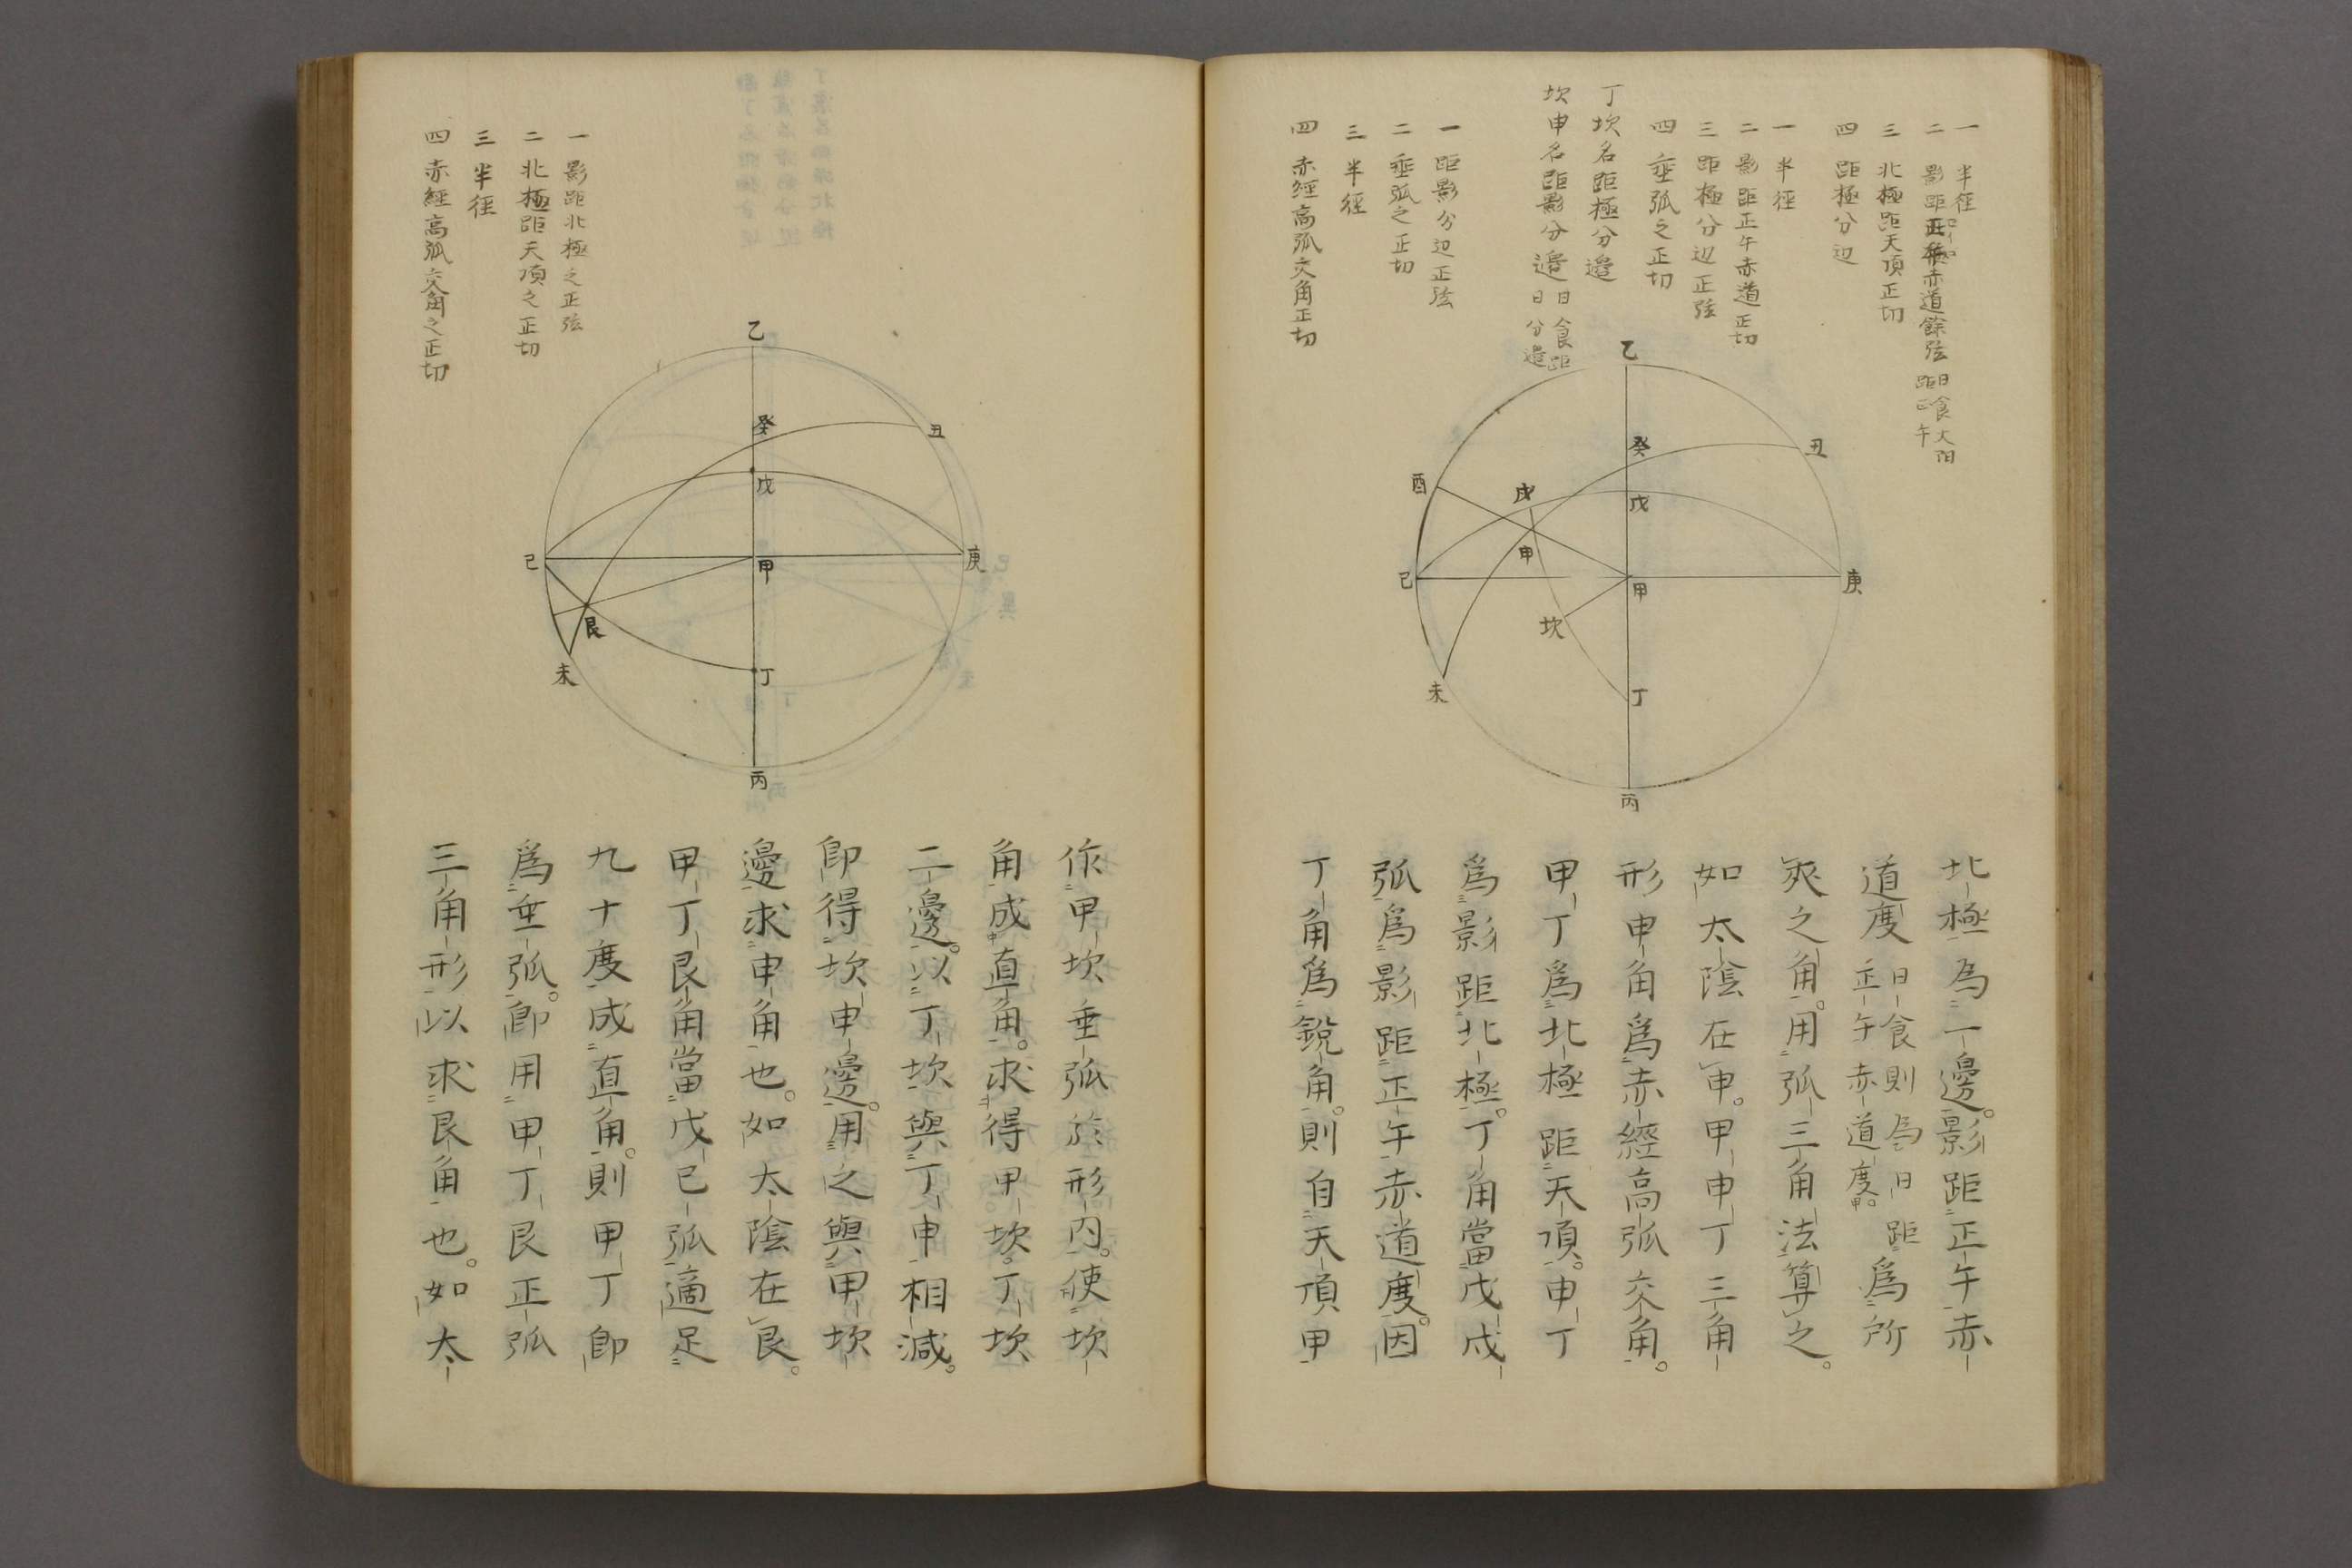 一 半徑
二 影距正午赤道餘弦
日食太阳
距正午
三 北極距天頂正切
四 距極分边
一 半徑
二 影距正午赤道正切
三 距極分边正弦
四 垂弧之正切
丁坎名距極分邉
坎申名距影分邉
日食距
日分邉
一 距影分边正弦
二 垂弧之正切
三 半徑
四 赤經高弧交角正切
乙
癸
丑
酉
戌
戊
申
己
甲
庚
坎
未
丁
丙
北極為一邊。影距正午赤
道度
日食則為日距
正午赤道度。
為所
夾之角。用弧三角法算之。
如太陰在申。甲申丁三角
形申角爲赤經高弧交角。
甲丁爲北極距天頂。申丁
爲影距北極。丁角當戊戌
弧爲影距正午赤道度。因
丁角爲銳角。則自天頂甲
一 影距北極之正弦
二 北極距天頂之正切
三 半徑
四 赤經高弧交角之正切
乙
癸
丑
戊
己
甲
庚
艮
未
丁
丙
作甲坎垂弧於形内。使坎
角成直角。求得甲坎。丁坎
二邊。以丁坎與丁申相減。
卽得坎申邊。用之與甲坎
邊求申角也。如太陰在艮。
甲丁艮角當戊己弧適足
九十度成直角。則甲丁卽
爲垂弧。卽用甲丁艮正弧
三角形以求艮角也。如太